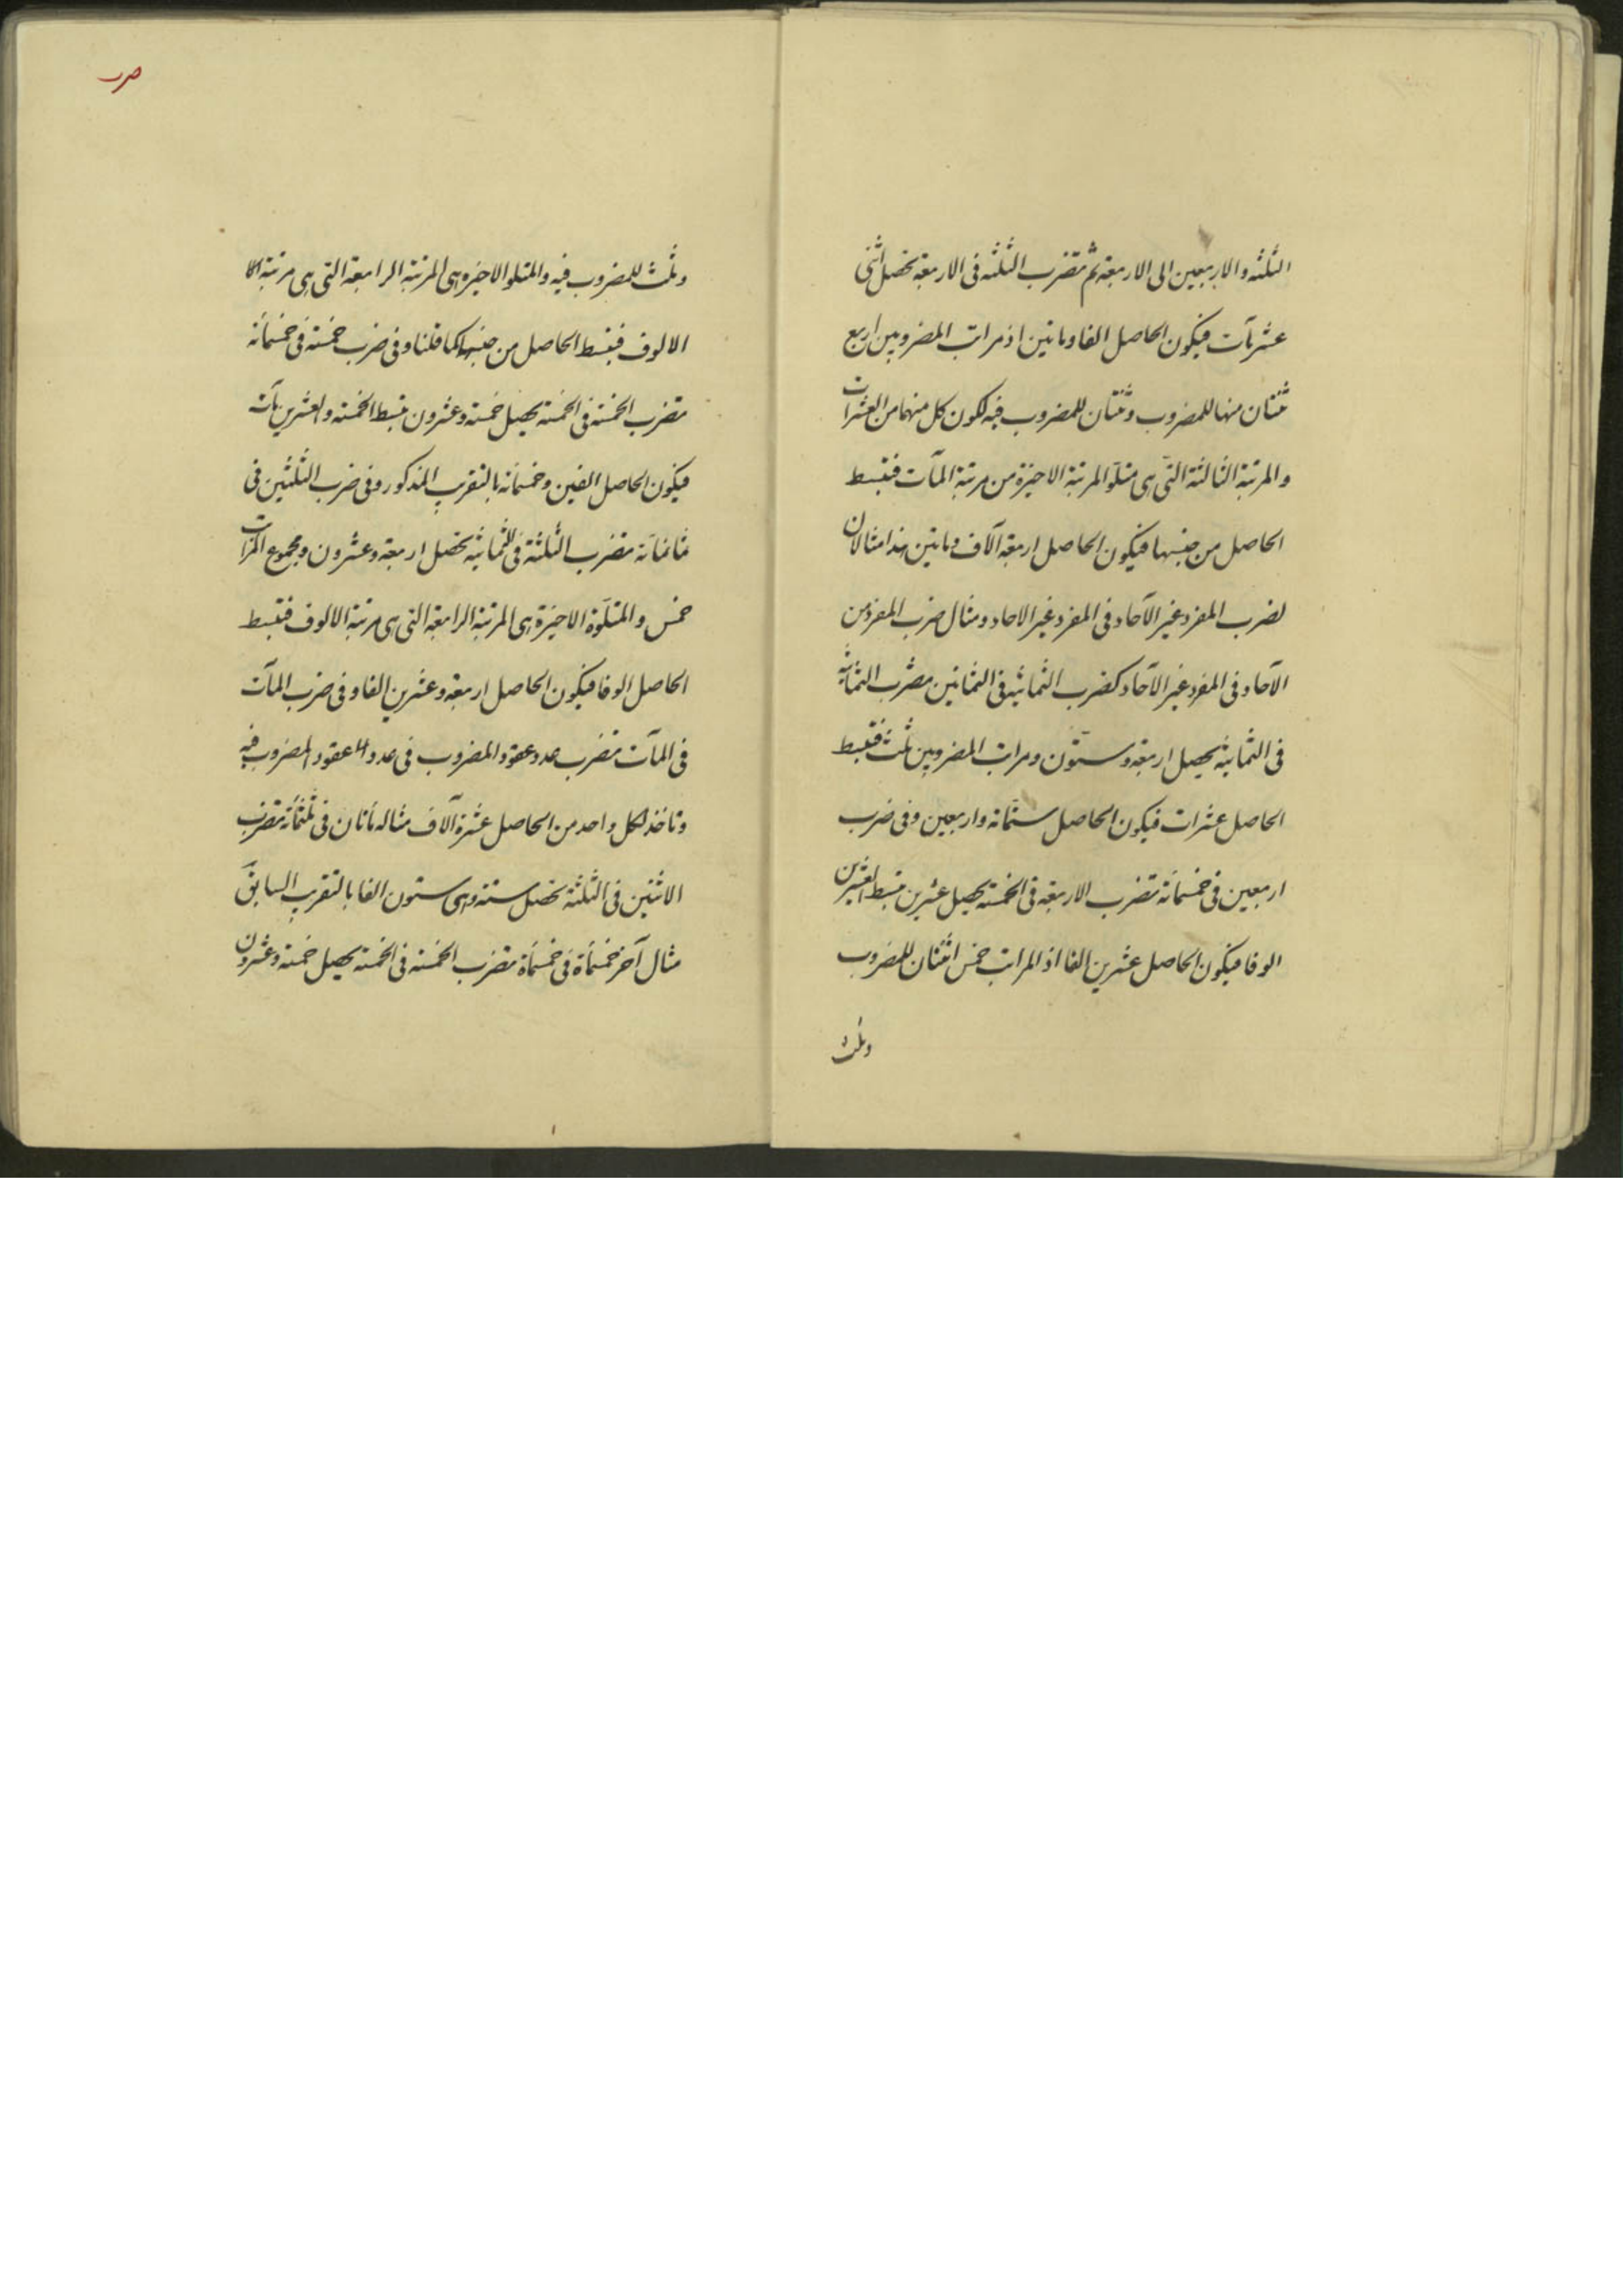 الثلثة والاربعين الى الاربعة ثم تضرب الثلثة فى الاربعة تحصل اثنى
عشر مآت فيكون الحاصل الفا وماتين اذ مراتب المضروبين اربع
ثنتان منها للمضروب وثنتان للمضروب فيه لكون كل منهما من العشرات
والمرتبة الثالثة التى هى متلو المرتبة الاخيرة من مرتبة المآت فتبسط
الحاصل من جنسها فيكون الحاصل اربعة آلاف وماتين هذا مثالان
لضرب المفرد غير الآحاد فى المفرد غير الاحاد ومثال ضرب المفرد من
الآحاد فى المفرد غير الآحاد كضرب الثمانية فى الثمانين تضرب الثمانية
فى الثمانية يحصل اربعة وستون ومراتب المضروبين ثلث فتبسط
الحاصل عشرات فيكون الحاصل ستمائة واربعين وفى ضرب
اربعين فى خمسمائة تضرب الاربعة فى الخمسة يحصل عشرين تبسط العشرين
الوفا فيكون الحاصل عشرين الفا اذ المراتب خمس اثنتان للمضروب
وثلث
وثلث للمضروب فيه والمتلو الاخيرة هى المرتبة الرابعة التى هى مرتبة
الالوف فتبسط الحاصل من جنسها كما قلنا وفى ضرب خمسة فى خمسمائة
تضرب الخمسة فى الخمسة يحصل خمسة وعشرون تبسط الخمسة والعشرين مآت
فيكون الحاصل الفين وخمسمائة بالتقريب المذكور وفى ضرب الثلثين فى
ثمانمائة تضرب الثلثة فى الثمانية تحصل اربعة وعشرون ومجموع المراتب
خمس والمتلوة الاخيرة هى المرتبة الرابعة التى هى مرتبة الالوف فتبسط
الحاصل الوفا فيكون الحاصل اربعة وعشرين الفا وفى ضرب المآت
فى المآت تضرب عدد عقود المضروب فى عدد العقود المضروب فيه
وتاخذ لكل واحد من الحاصل عشرة آلاف مثاله مأتان فى ثلثمائة تضرب
الاثنين فى الثلثة تحصل ستة وهى ستون الفا بالتقريب السابق
مثال آخر خمسمأة فى خمسمأة تضرب الخمسة فى الخمسة يحصل خمسة وعشرون